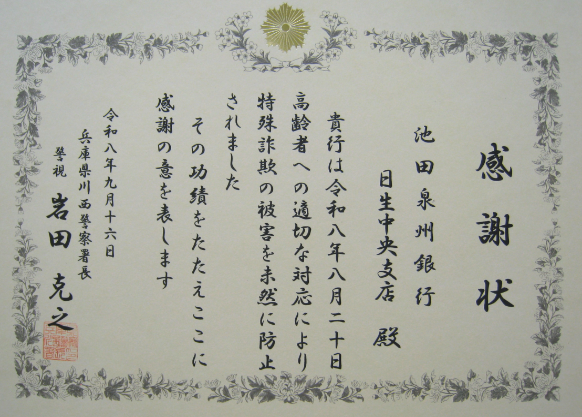 感謝状
池田泉州銀行
日生中央支店 殿
貴行は令和八年八月二十日
高齢者への適切な対応により
特殊詐欺の被害を未然に防止
されました
その功績をたたえここに
感謝の意を表します
令和八年九月十六日
兵庫県川西警察署長
警視 岩田克之